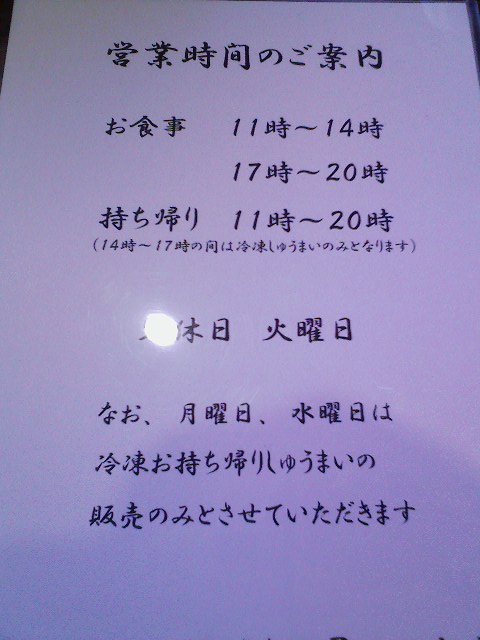 営業時間のご案内
お食事 11時～14時
17時～20時
持ち帰り 11時～20時
（14時～17時の間は冷凍しゅうまいのみとなります）
休日 火曜日
なお、月曜日、水曜日は
冷凍お持ち帰りしゅうまいの
販売のみとさせていただきます